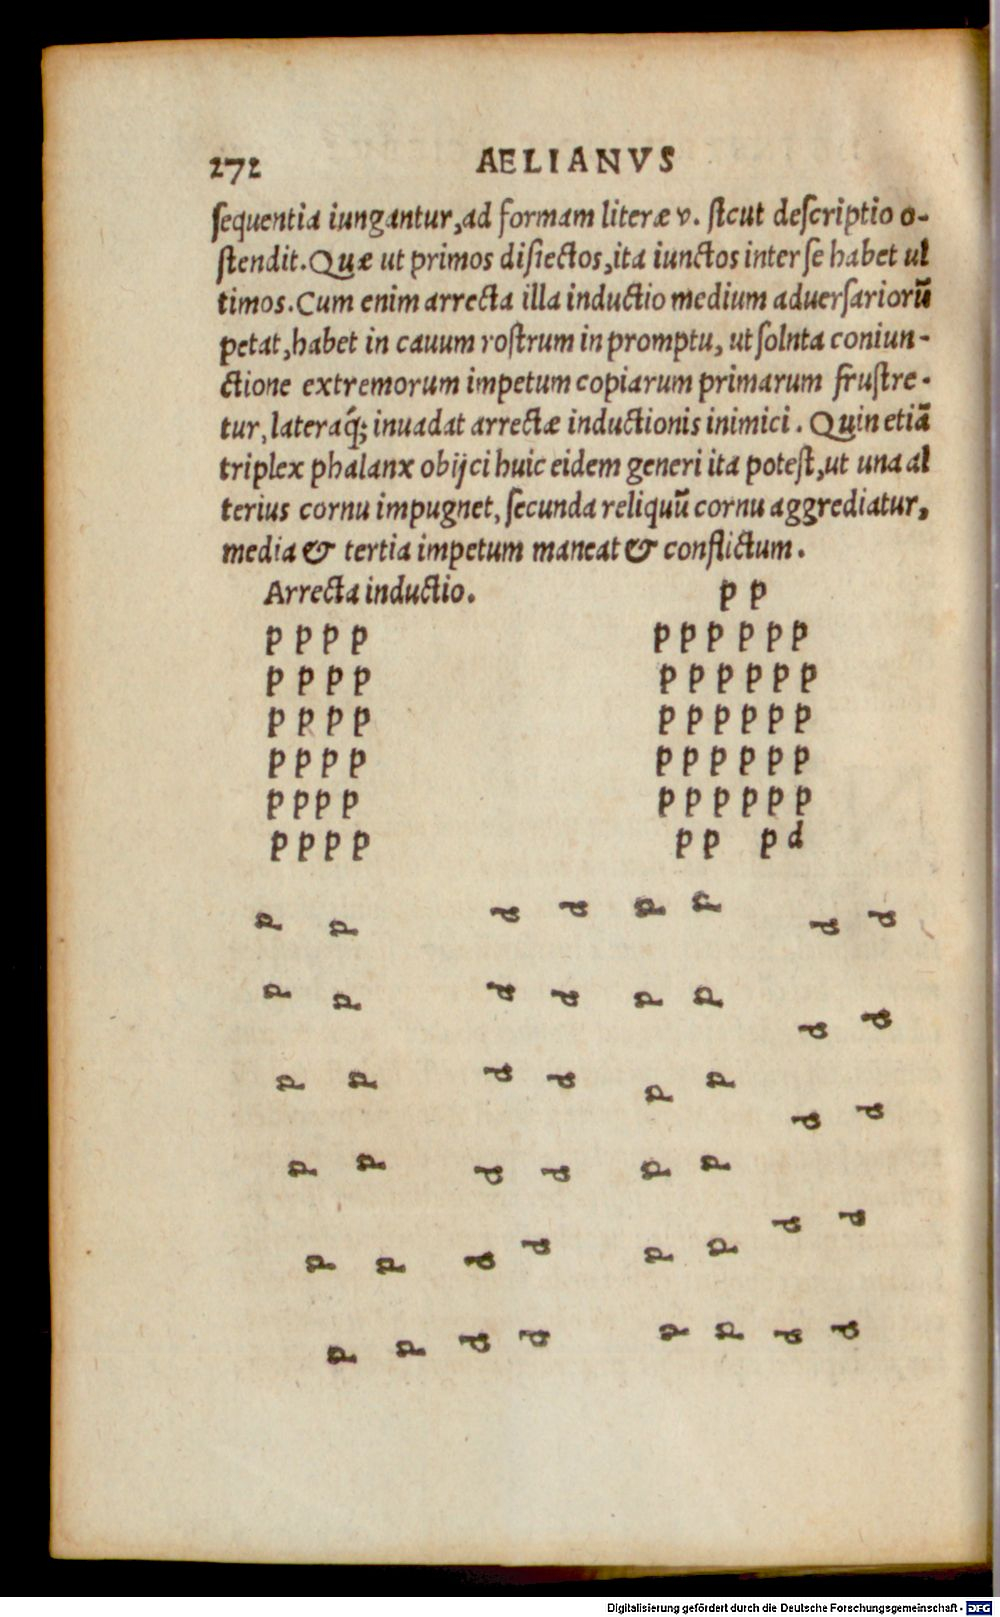 272 AELIANVS
ſequentia iungantur, ad formam literæ v. ſicut deſcriptio o-
ſtendit. Quæ ut primos diſiectos, ita iunctos inter ſe habet ul
timos. Cum enim arrecta illa inductio medium aduerſariorũ
petat, habet in cauum roſtrum in promptu, ut ſolnta coniun-
ctione extremorum impetum copiarum primarum fruſtre-
tur, lateraq́; inuadat arrectæ inductionis inimici. Quin etiã
triplex phalanx obijci huic eidem generi ita poteſt, ut una al
terius cornu impugnet, ſecunda reliquũ cornu aggrediatur,
media & tertia impetum maneat & conflictum.
Arrecta inductio. p p
p p p p p p p p p p
p p p p p p p p p p
p p p p p p p p p p
p p p p p p p p p p
p p p p p p p p p p
p p p p p p p d
p p p p p p p p
p p p p p p p p
p p p p p p p p
p p p p p p p p
p p p p p p p p
p p p p p p p p
Digitalisierung gefördert durch die Deutsche Forschungsgemeinschaft - DFG